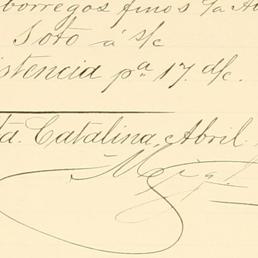 borregos finos s/a A
Soto á s/c
istencia pª 17. d/c.
ta. Catalina, Abril